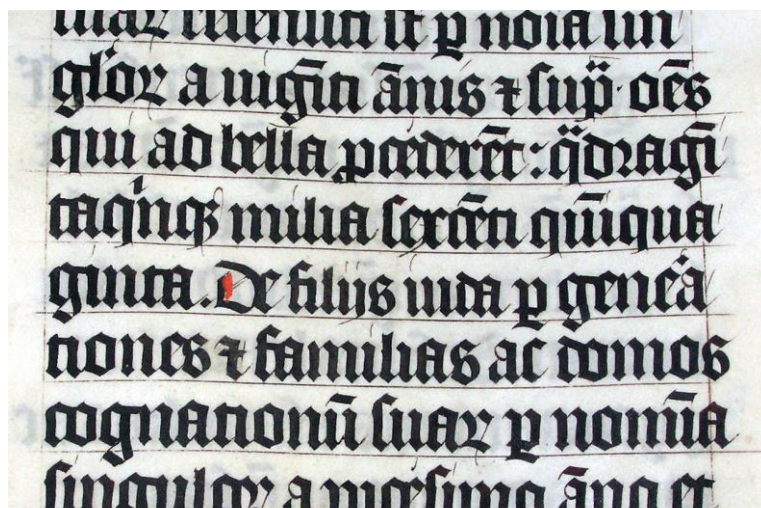 suaꝝ recensiti sūt ꝑ noīa sin
guloꝝ a uigīti ānis ⁊ sup̄· oēs
qui ad bella ꝓcederēt: q̈dragī
taqͥnqꝫ milia sexcēti qūiqua
ginta. De filijs iuda ꝑ gen̄ea
tiones ⁊ familias ac domos
cognationū suaꝝ ꝑ nomīa
singuloꝝ a uicesimo āno et